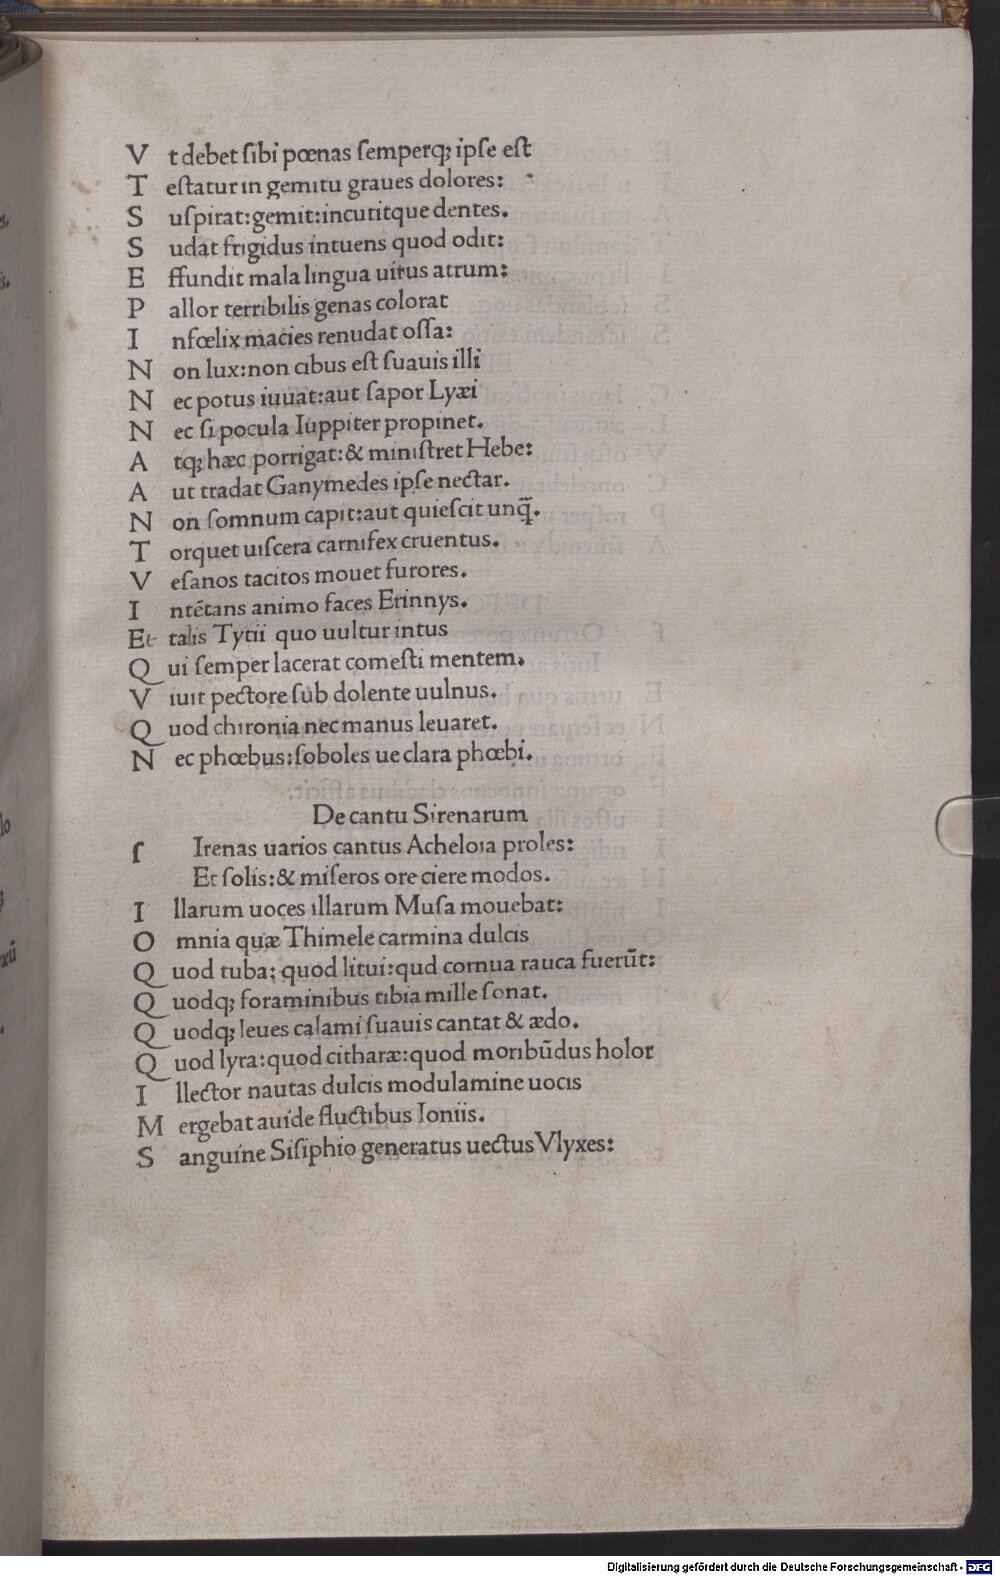 V t debet ſibi pœnas ſemperq; ipſe eſt
T eſtatur in gemitu graues dolores:
S uſpirat:gemit:incutitque dentes.
S udat frigidus intuens quod odit:
E ffundit mala lingua uirus atrum:
P allor terribilis genas colorat
I nfœlix macies renudat oſſa:
N on lux:non cibus eſt ſuauis illi
N ec potus iuuat:aut ſapor Lyæi
N ec ſi pocula Iuppiter propinet.
A tq; hæc porrigat:& miniſtret Hebe:
A ut tradat Ganymedes ipſe nectar.
N on ſomnum capit:aut quieſcit unq̃.
T orquet uiſcera carnifex cruentus.
V eſanos tacitos mouet furores.
I ntētans animo faces Erinnys.
Et talis Tytii quo uultur intus
Q ui ſemper lacerat comeſti mentem.
V iuit pectore ſub dolente uulnus.
Q uod chironia nec manus leuaret.
N ec phœbus:ſoboles ue clara phœbi.
De cantu Sirenarum
ſ Irenas uarios cantus Acheloia proles:
Et ſolis:& miſeros ore ciere modos.
I llarum uoces illarum Muſa mouebat:
O mnia quæ Thimele carmina dulcis
Q uod tuba: quod litui:qud cornua rauca fuerūt:
Q uodq; foraminibus tibia mille ſonat.
Q uodq; leues calami ſuauis cantat & ædo.
Q uod lyra:quod citharæ:quod moribūdus holor
I llector nautas dulcis modulamine uocis
M ergebat auide fluctibus Ioniis.
S anguine Siſiphio generatus uectus Vlyxes:
Digitalisierung gefördert durch die Deutsche Forschungsgemeinschaft - DFG